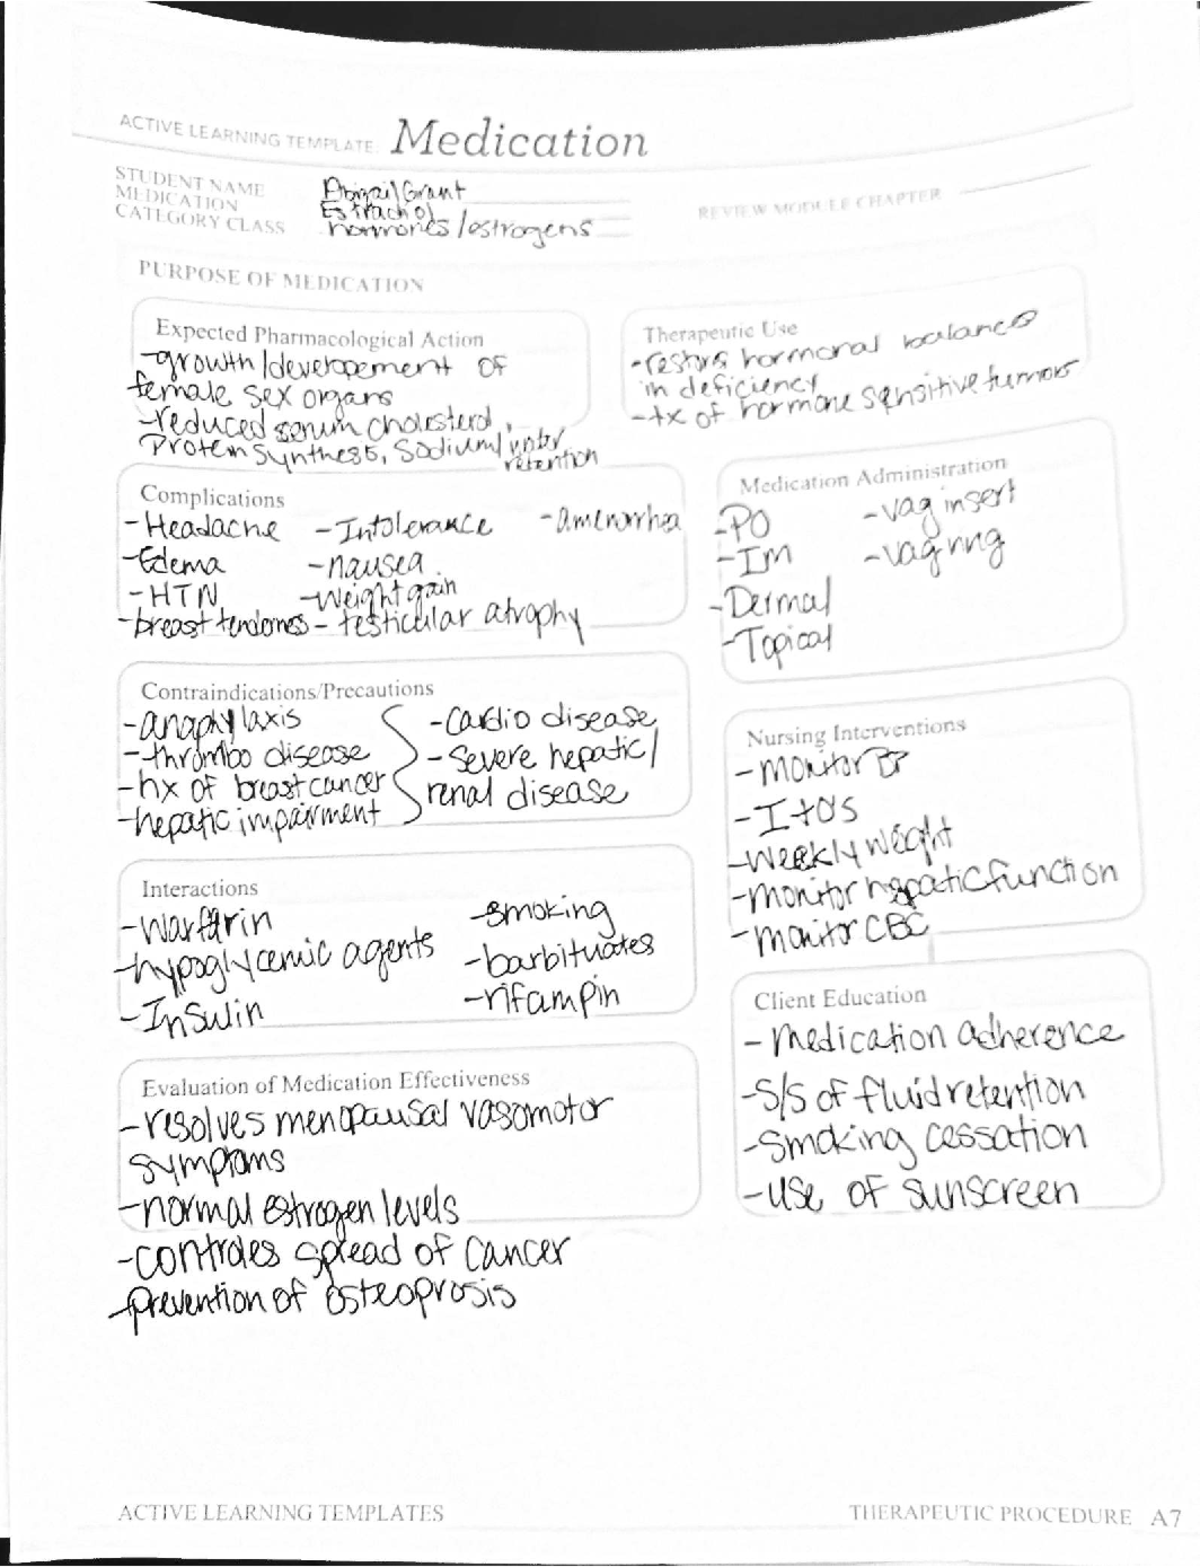 ACTIVE LEARNING TEMPLATE: Medication
STUDENT NAME Abigail Grant
MEDICATION Estrachol
CATEGORY CLASS hormones/estrogens
REVIEW MODULE CHAPTER
PURPOSE OF MEDICATION
Expected Pharmacological Action
-growth/developement of
female sex organs
-reduced serum cholesterol,
Protein synthesis, sodium/water
retention
Therapeutic Use
-restore hormonal balance
in deficiency
-tx of hormone sensitive tumors
Complications
-Headache -Intolerance -amenorrhea
-Edema -nausea
-HTN -weight gain
-breast tenderness - testicular atrophy
Medication Administration
-PO -vag insert
-IM -vag ring
-Dermal
-Topical
Contraindications/Precautions
-anaphylaxis -cardio disease
-thrombo disease -severe hepatic/
-hx of breast cancer renal disease
-hepatic impairment
Nursing Interventions
-monitor BP
-I+O's
-weekly weight
-monitor hepatic function
-monitor CBC
Interactions
-warfarin -smoking
-hypoglycemic agents -barbituates
-Insulin -rifampin
Client Education
- medication adherence
-S/S of fluid retention
-smoking cessation
-use of sunscreen
Evaluation of Medication Effectiveness
-resolves menopausal vasomotor
symptoms
-normal estrogen levels
-controles spread of cancer
-prevention of osteoprosis
ACTIVE LEARNING TEMPLATES
THERAPEUTIC PROCEDURE A7